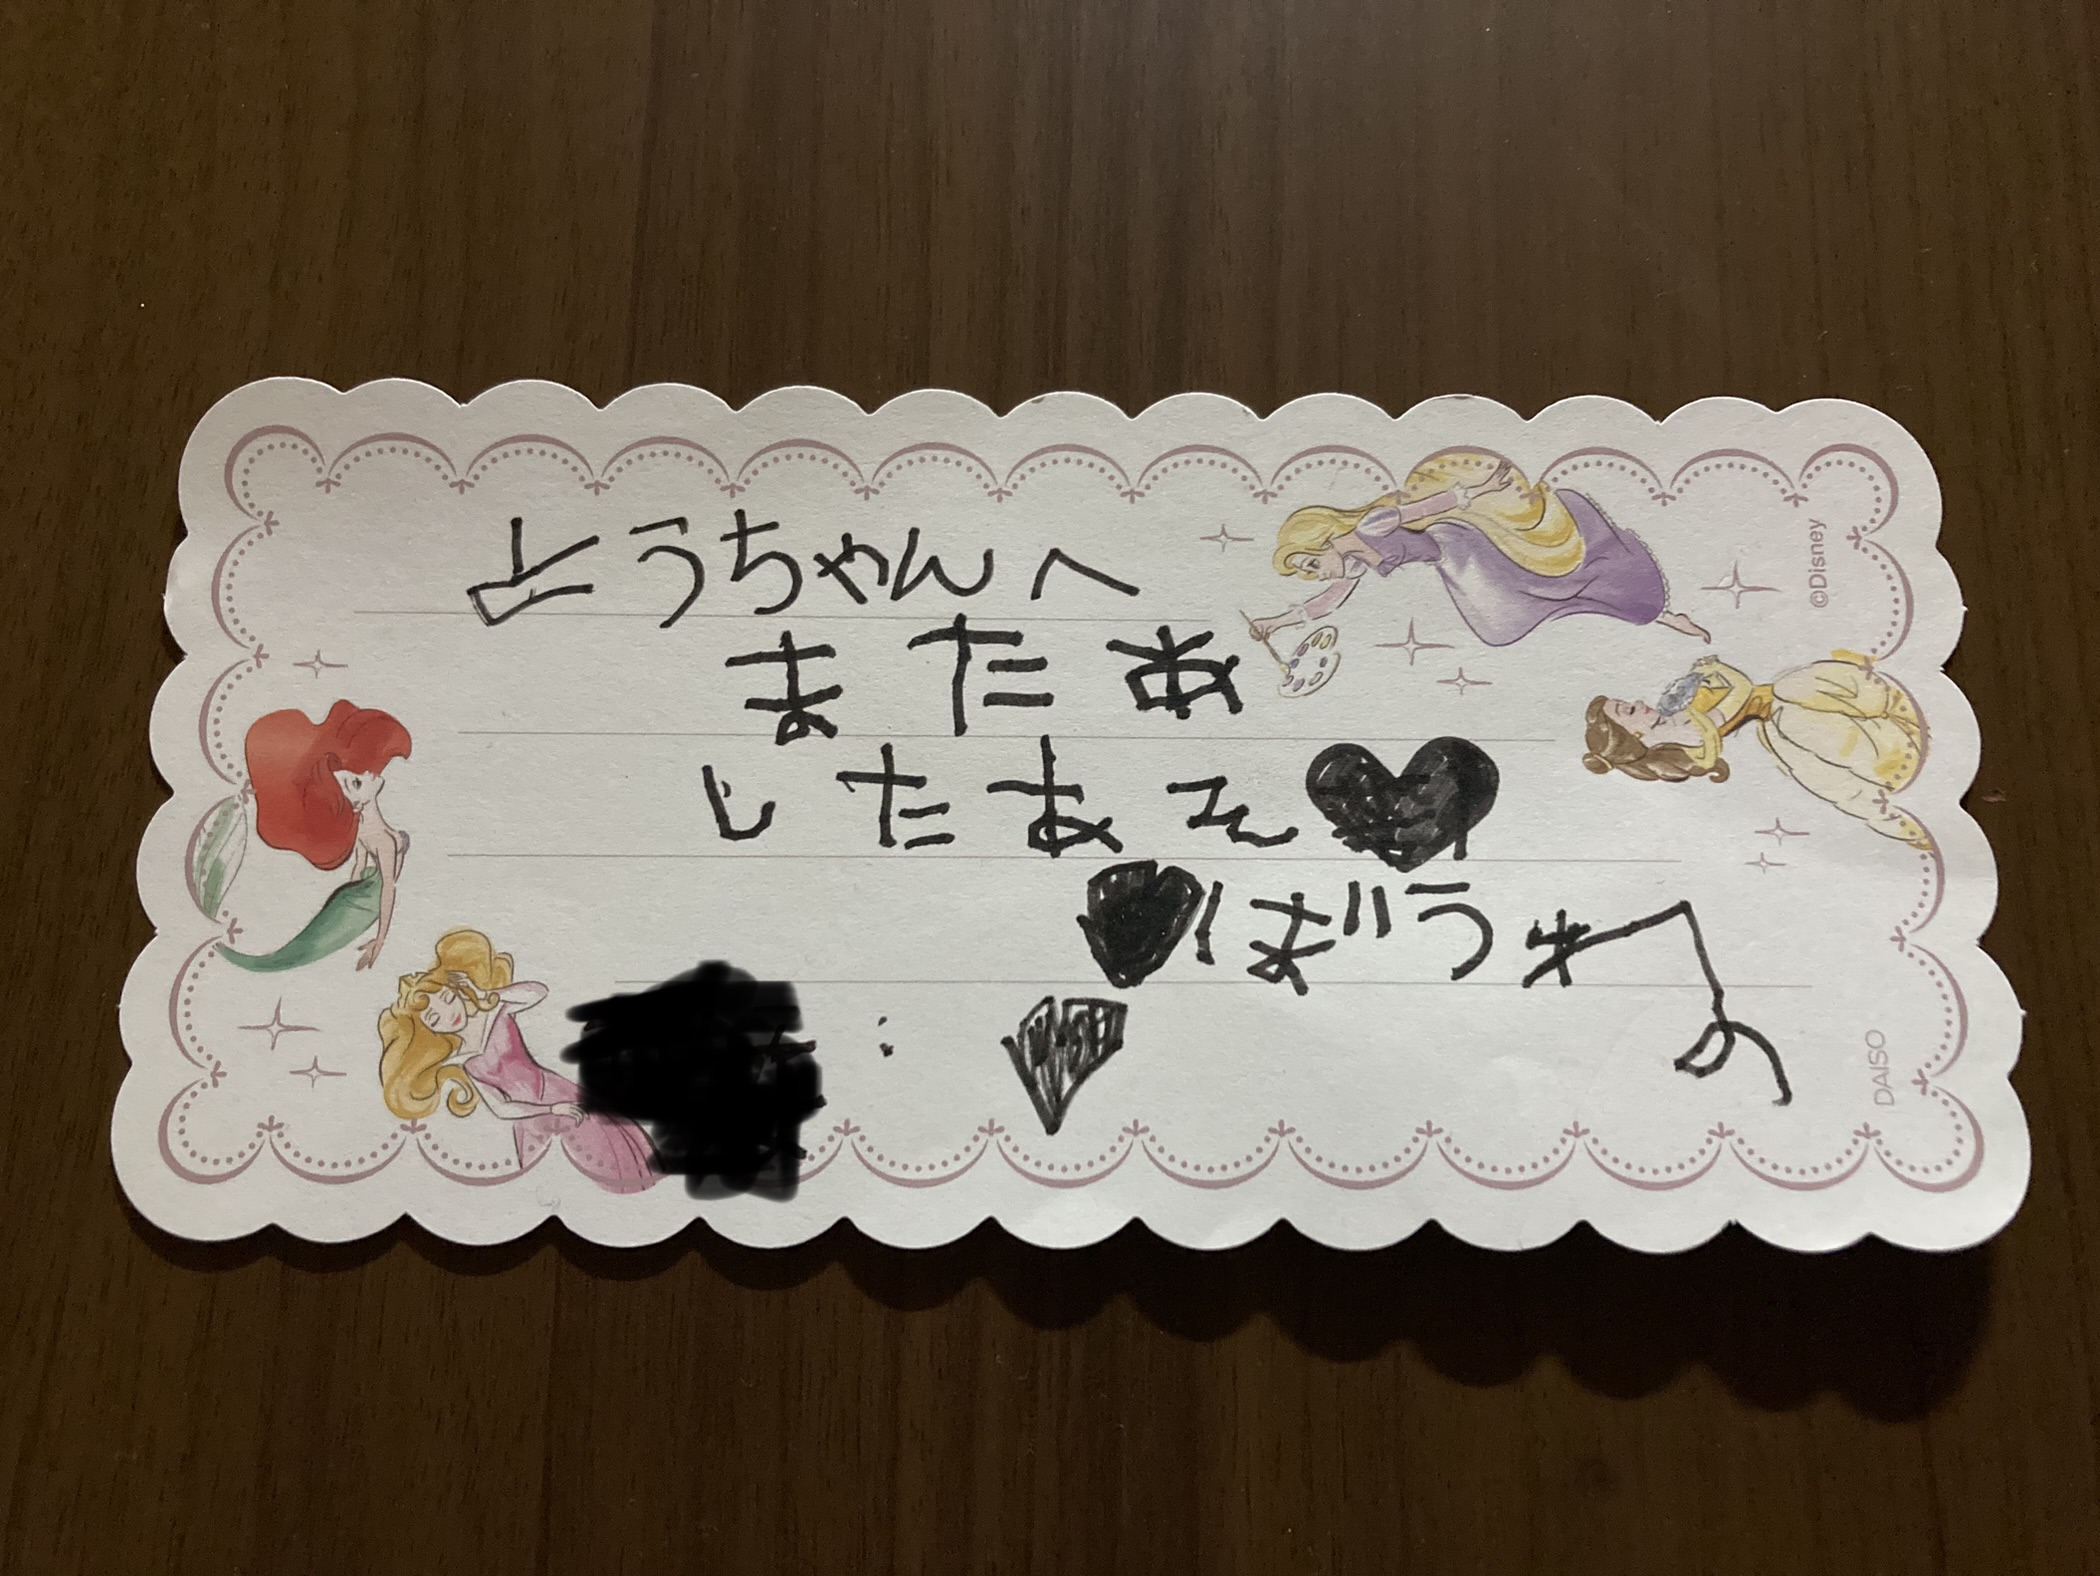 とうちゃんへ
またあ
したあそ
ぼうね
©Disney
DAISO